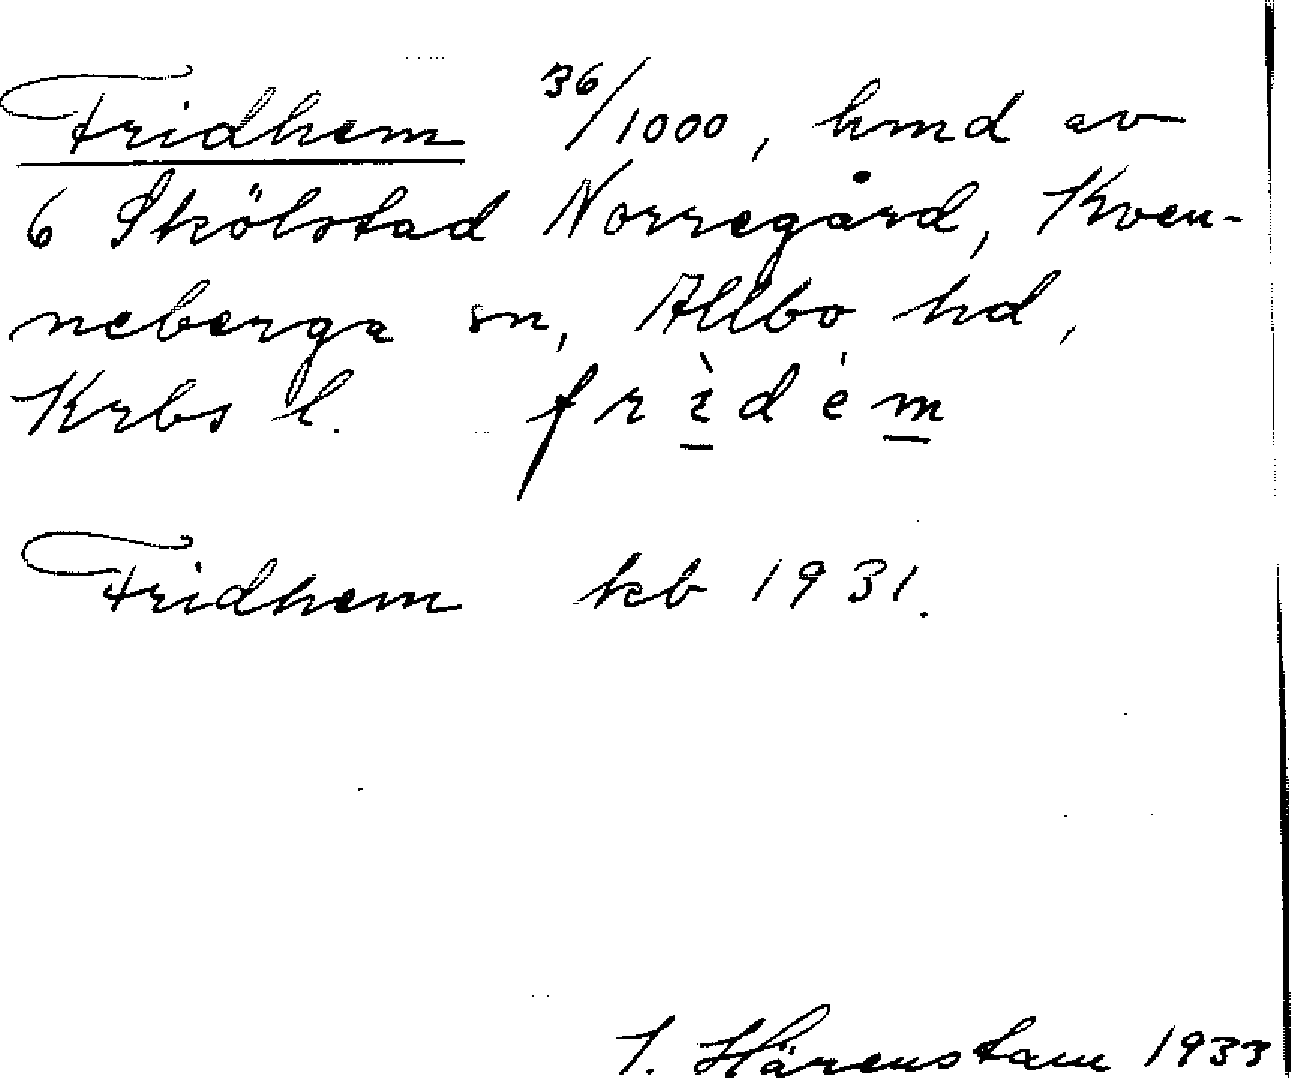 Fridhem 36/1000, hmd av
6 Skölstad Norregård, Kven-
neberga sn, Allbo hd,
Krbs l. frìdém
Fridhem kb 1931.
J. Härenstam 1933